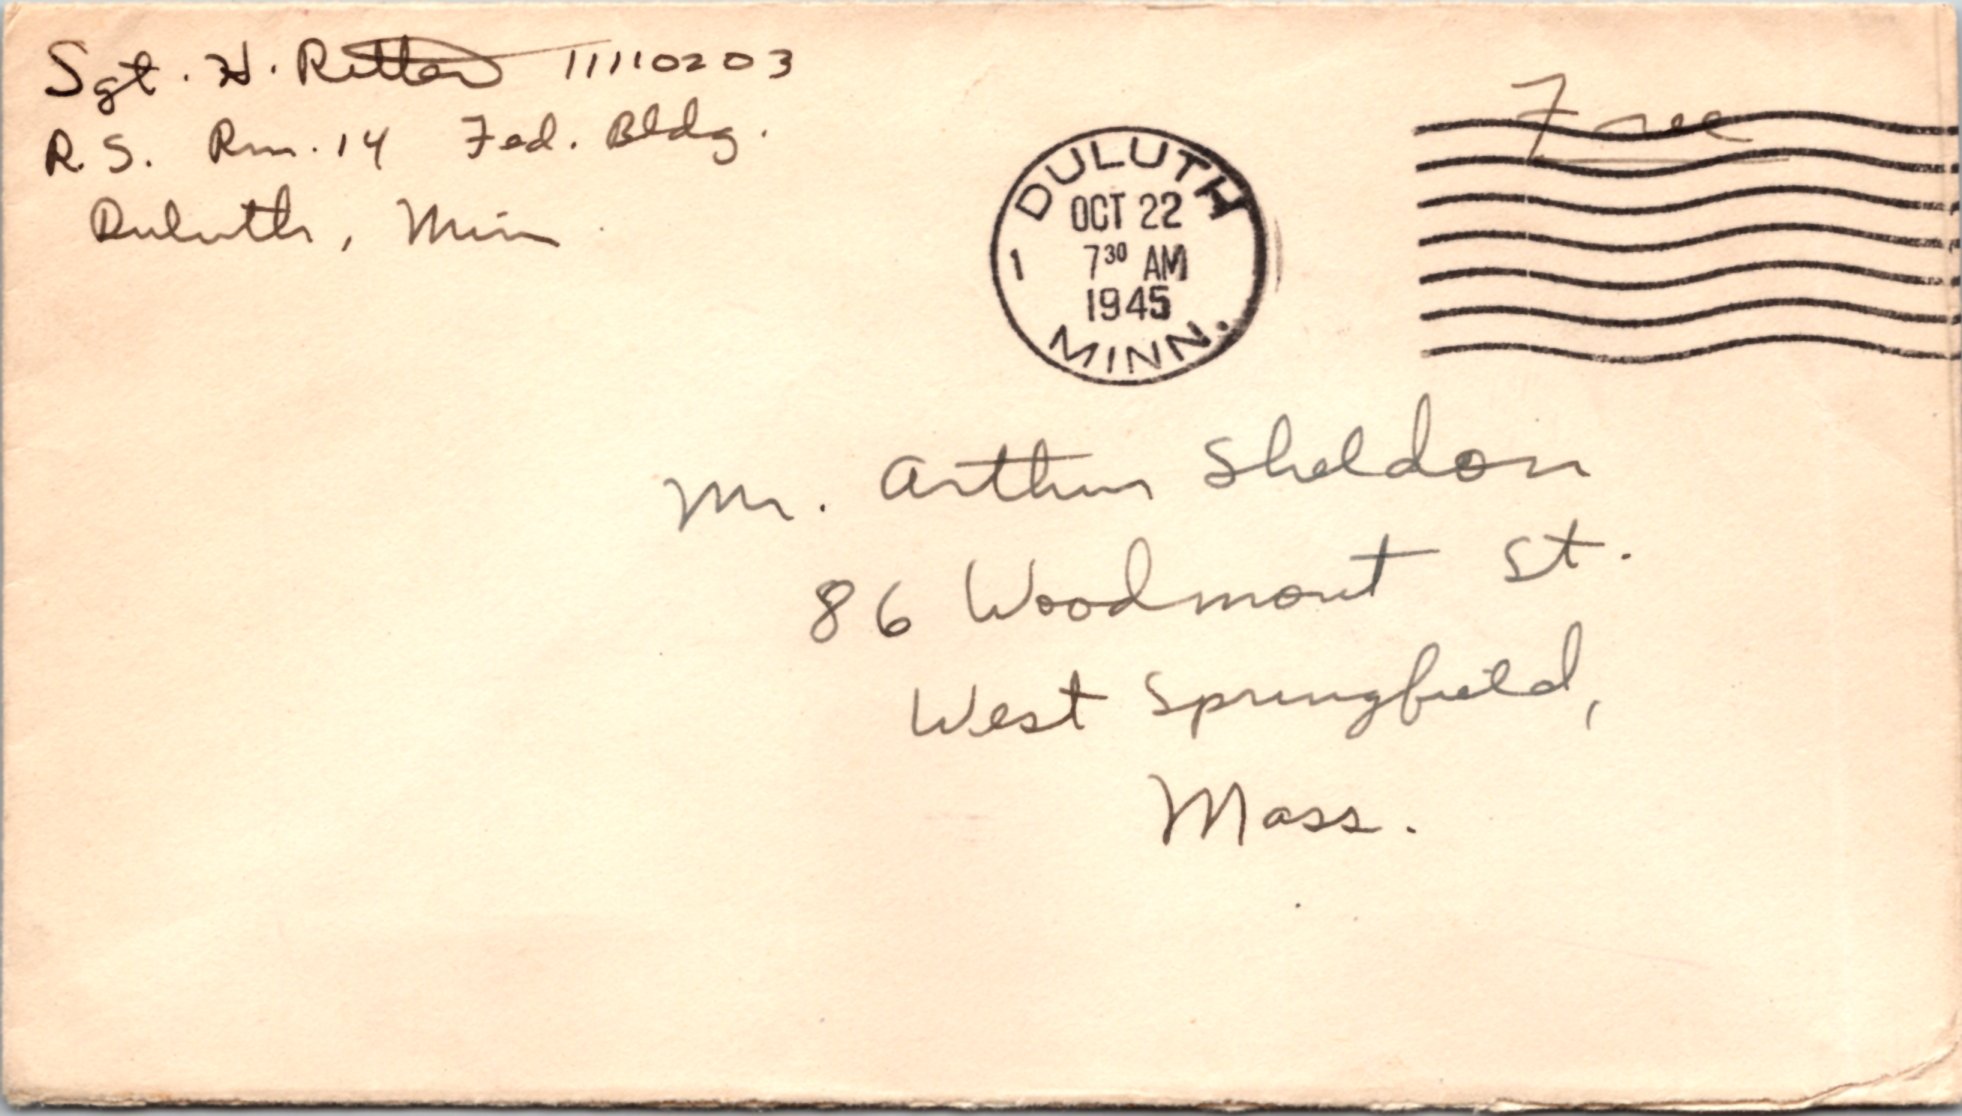 Sgt. H. Ritter 11110203
R.S. Rm. 14 Fed. Bldg.
Duluth, Minn
Free
DULUTH
OCT 22
7 30 AM
1
1945
MINN.
Mr. Arthur Sheldon
86 Woodmont St.
West Springfield,
Mass.